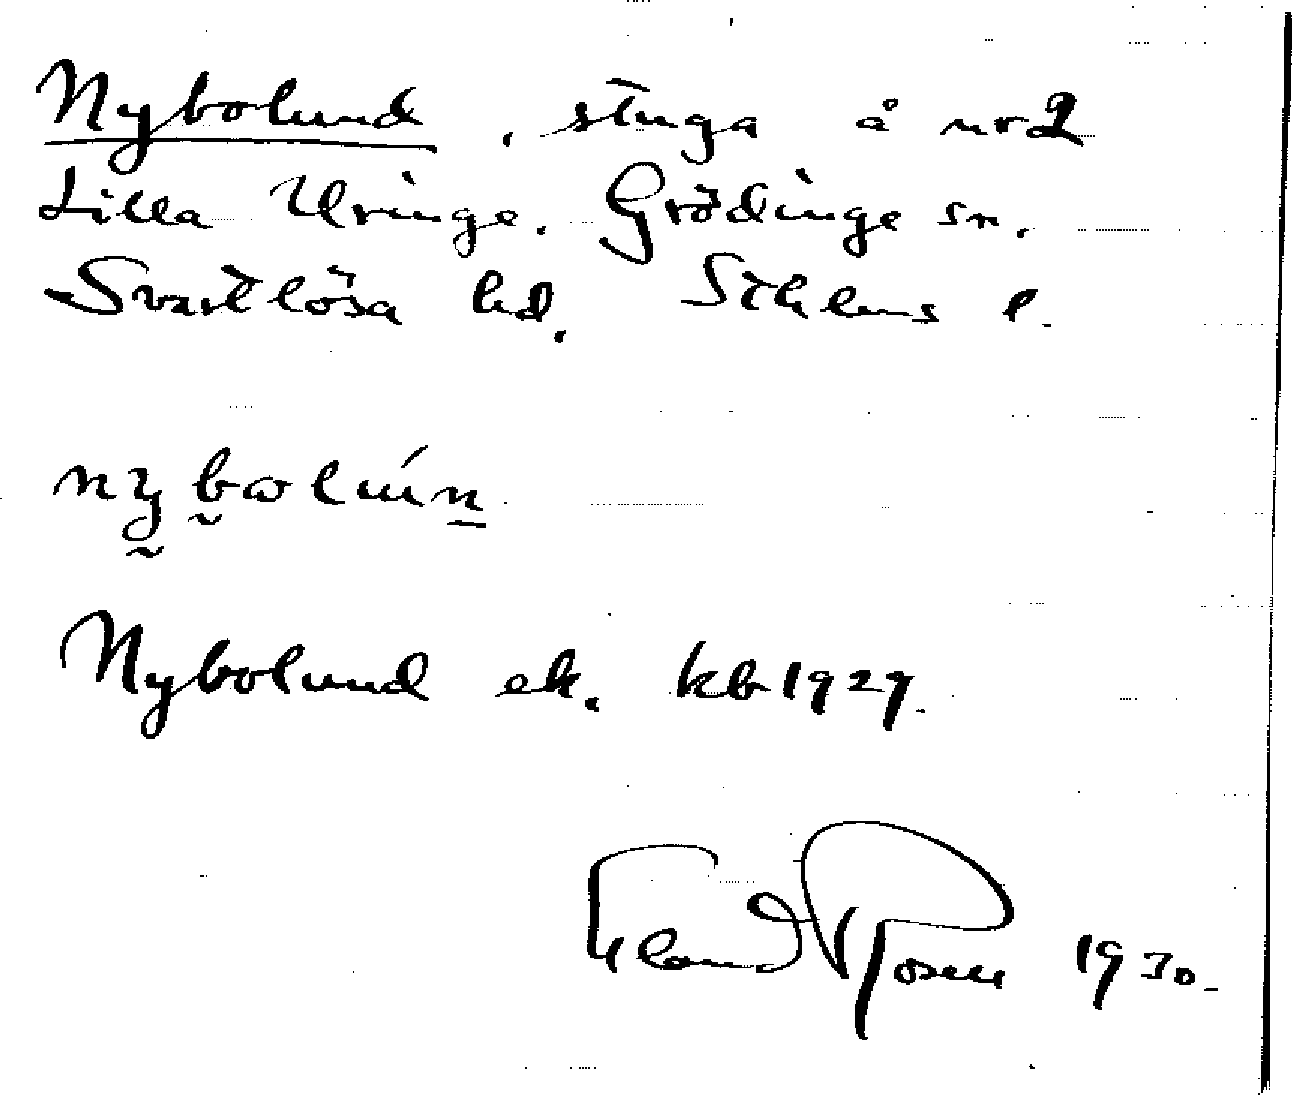 Nybolund, stuga å nr 2
Lilla Uringe. Grödinge sn.
Svartlösa hd. Sthlms l.
Nybolund ek. kb 1929.
Eland Rosell 1930.